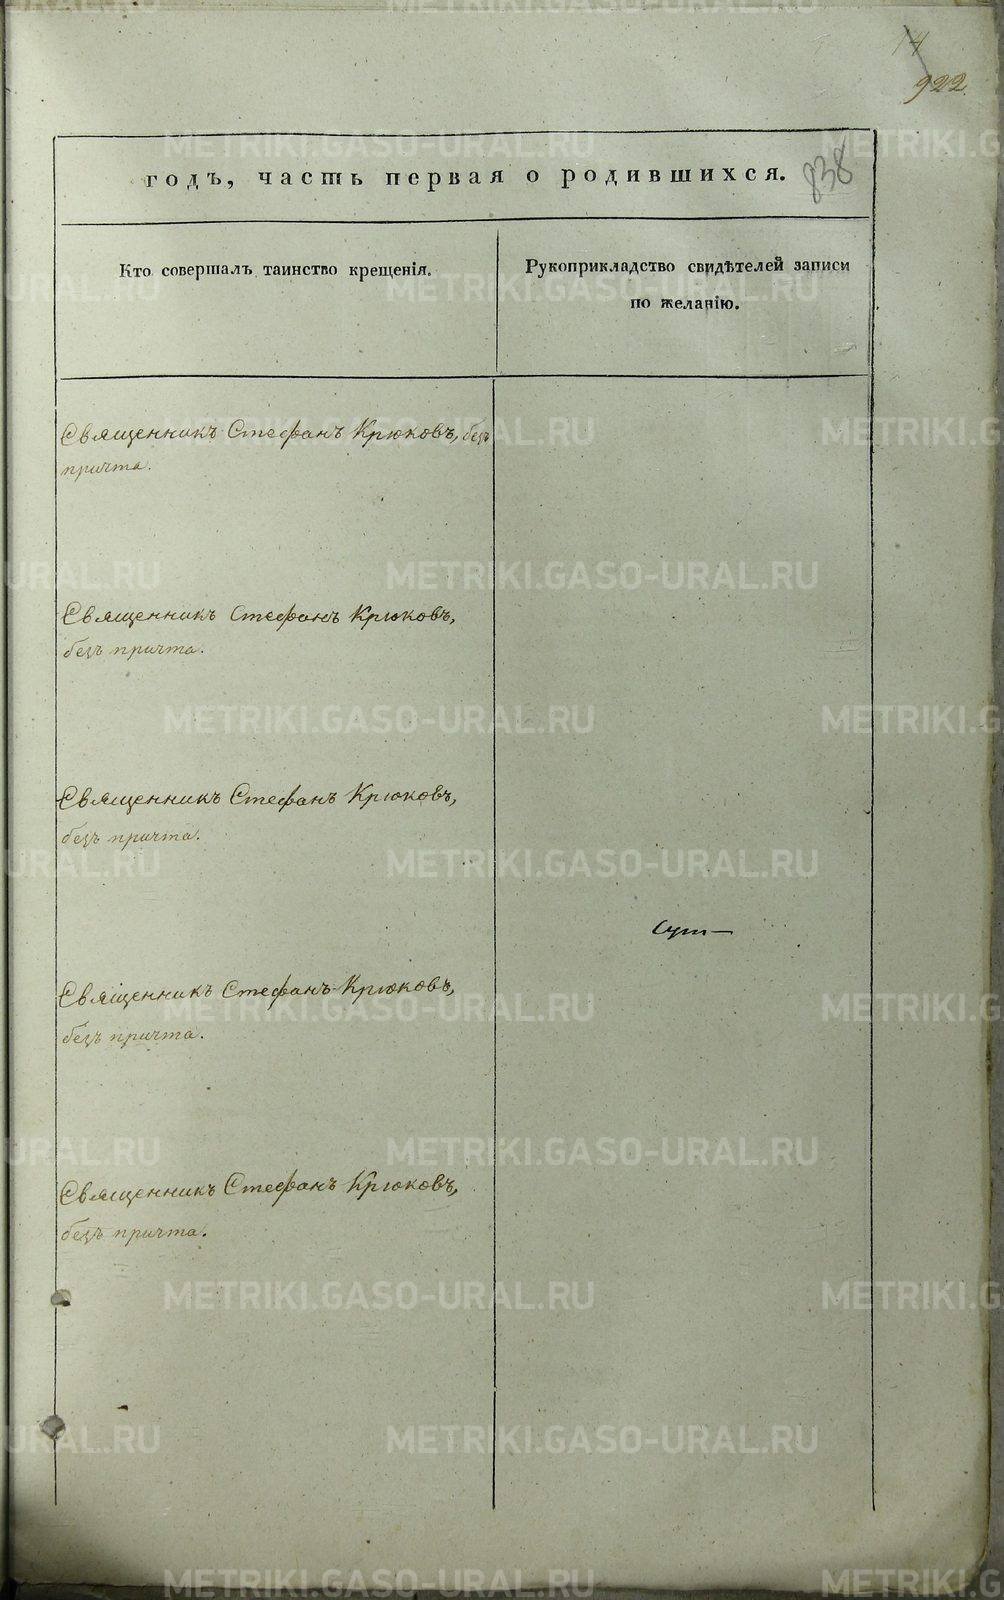 14
922.
годъ, часть первая о родившихся.
838
Кто совершалъ таинство крещенія.
Рукоприкладство свидѣтелей записи
по желанію.
Священникъ Стефанъ Крюковъ, безъ
причта.
Священникъ Стефанъ Крюковъ,
безъ причта.
Священникъ Стефанъ Крюковъ,
безъ причта.
Священникъ Стефанъ Крюковъ,
безъ причта.
Священникъ Стефанъ Крюковъ,
безъ причта.
METRIKI.GASO-URAL.RU